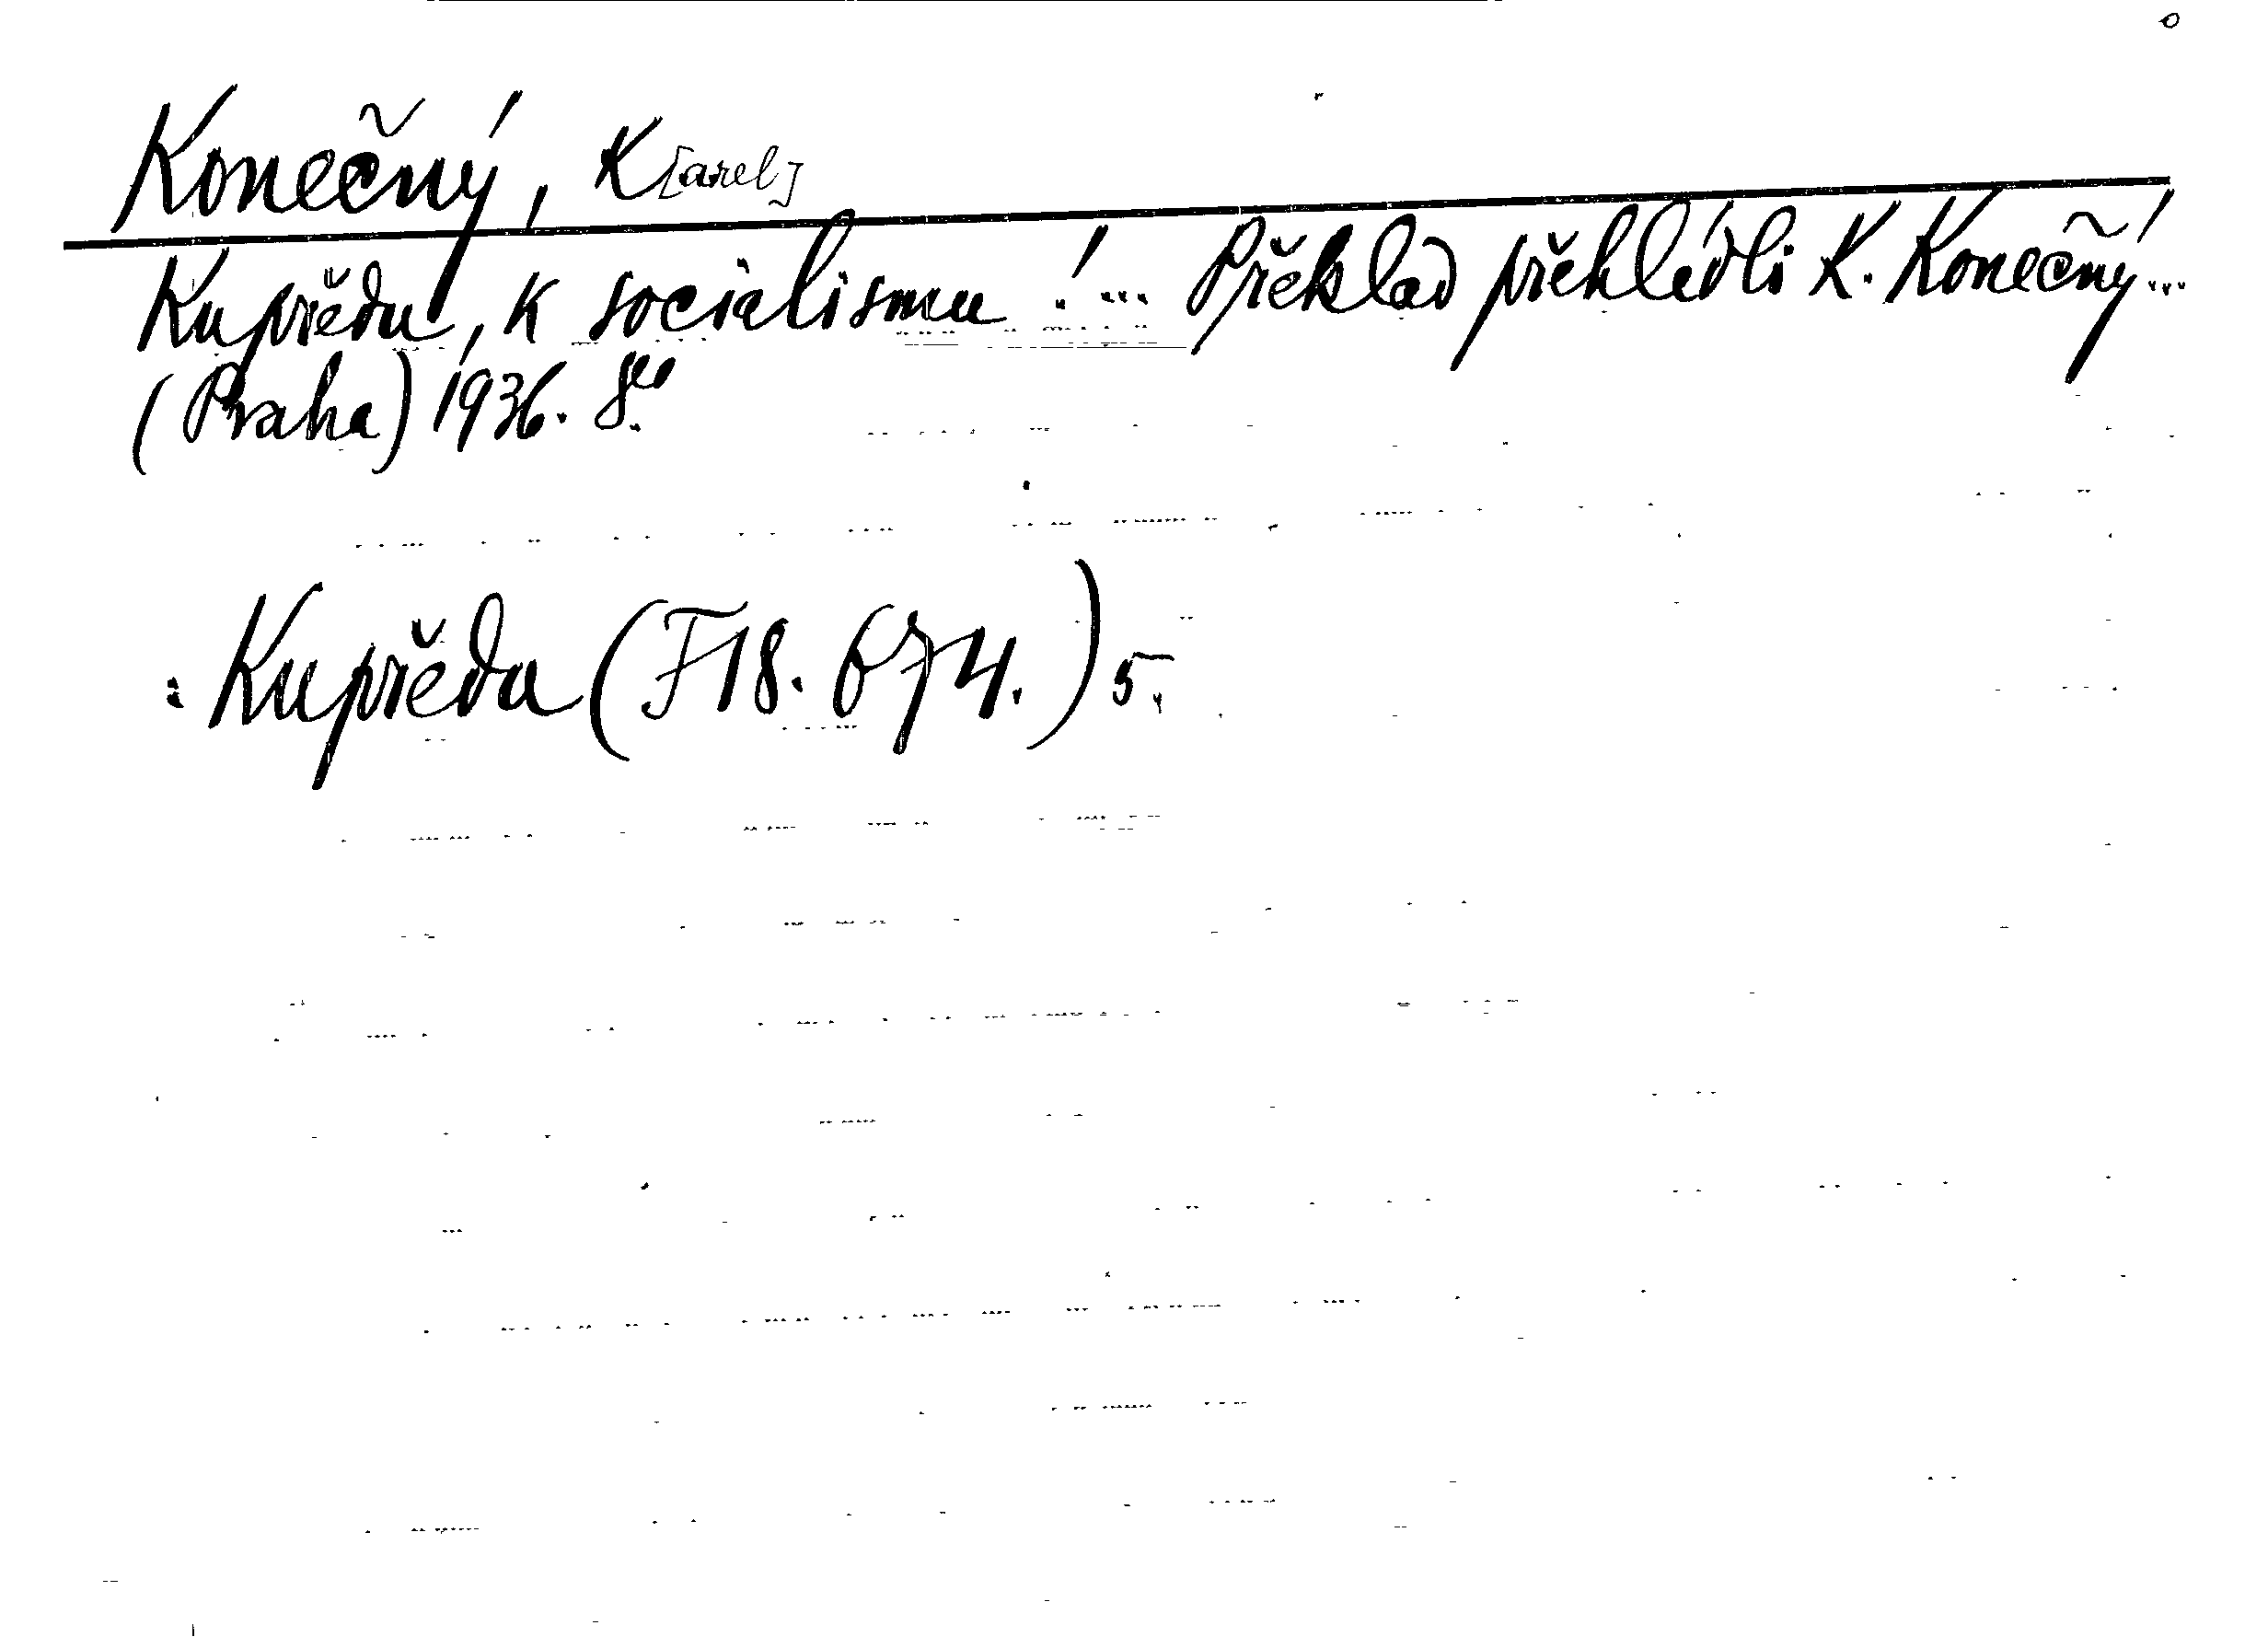 Konečný, K[arel]
Kupředu, k socialismu! ... Překlad přehlédli K. Konečný...
(Praha) 1936. 8°.
: Kupředu (F18.674.) 5.